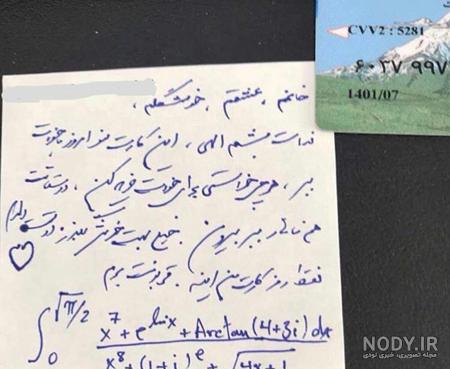 CVV2 : 5281
۶۰۳۷ ۹۹۷
1401/07
خانمم ، عشقم ، خوشگلم ،
فدات بشم الهی ، این کارت منو امروز با خودت
ببر ، هرچی خواستی برای خودت خرید کن ، دوستات
هم ناهار ببر بیرون . خیلی بهت خوش بگذره دوستت دارم
فقط رمز کارت من اینه . قربونت برم
∫₀^(√π/2) (x⁷ + e^(lnx) + Arctan(4+3i) dx) / (x⁸ + (1+i)^e + √(4x+1
NODY.IR